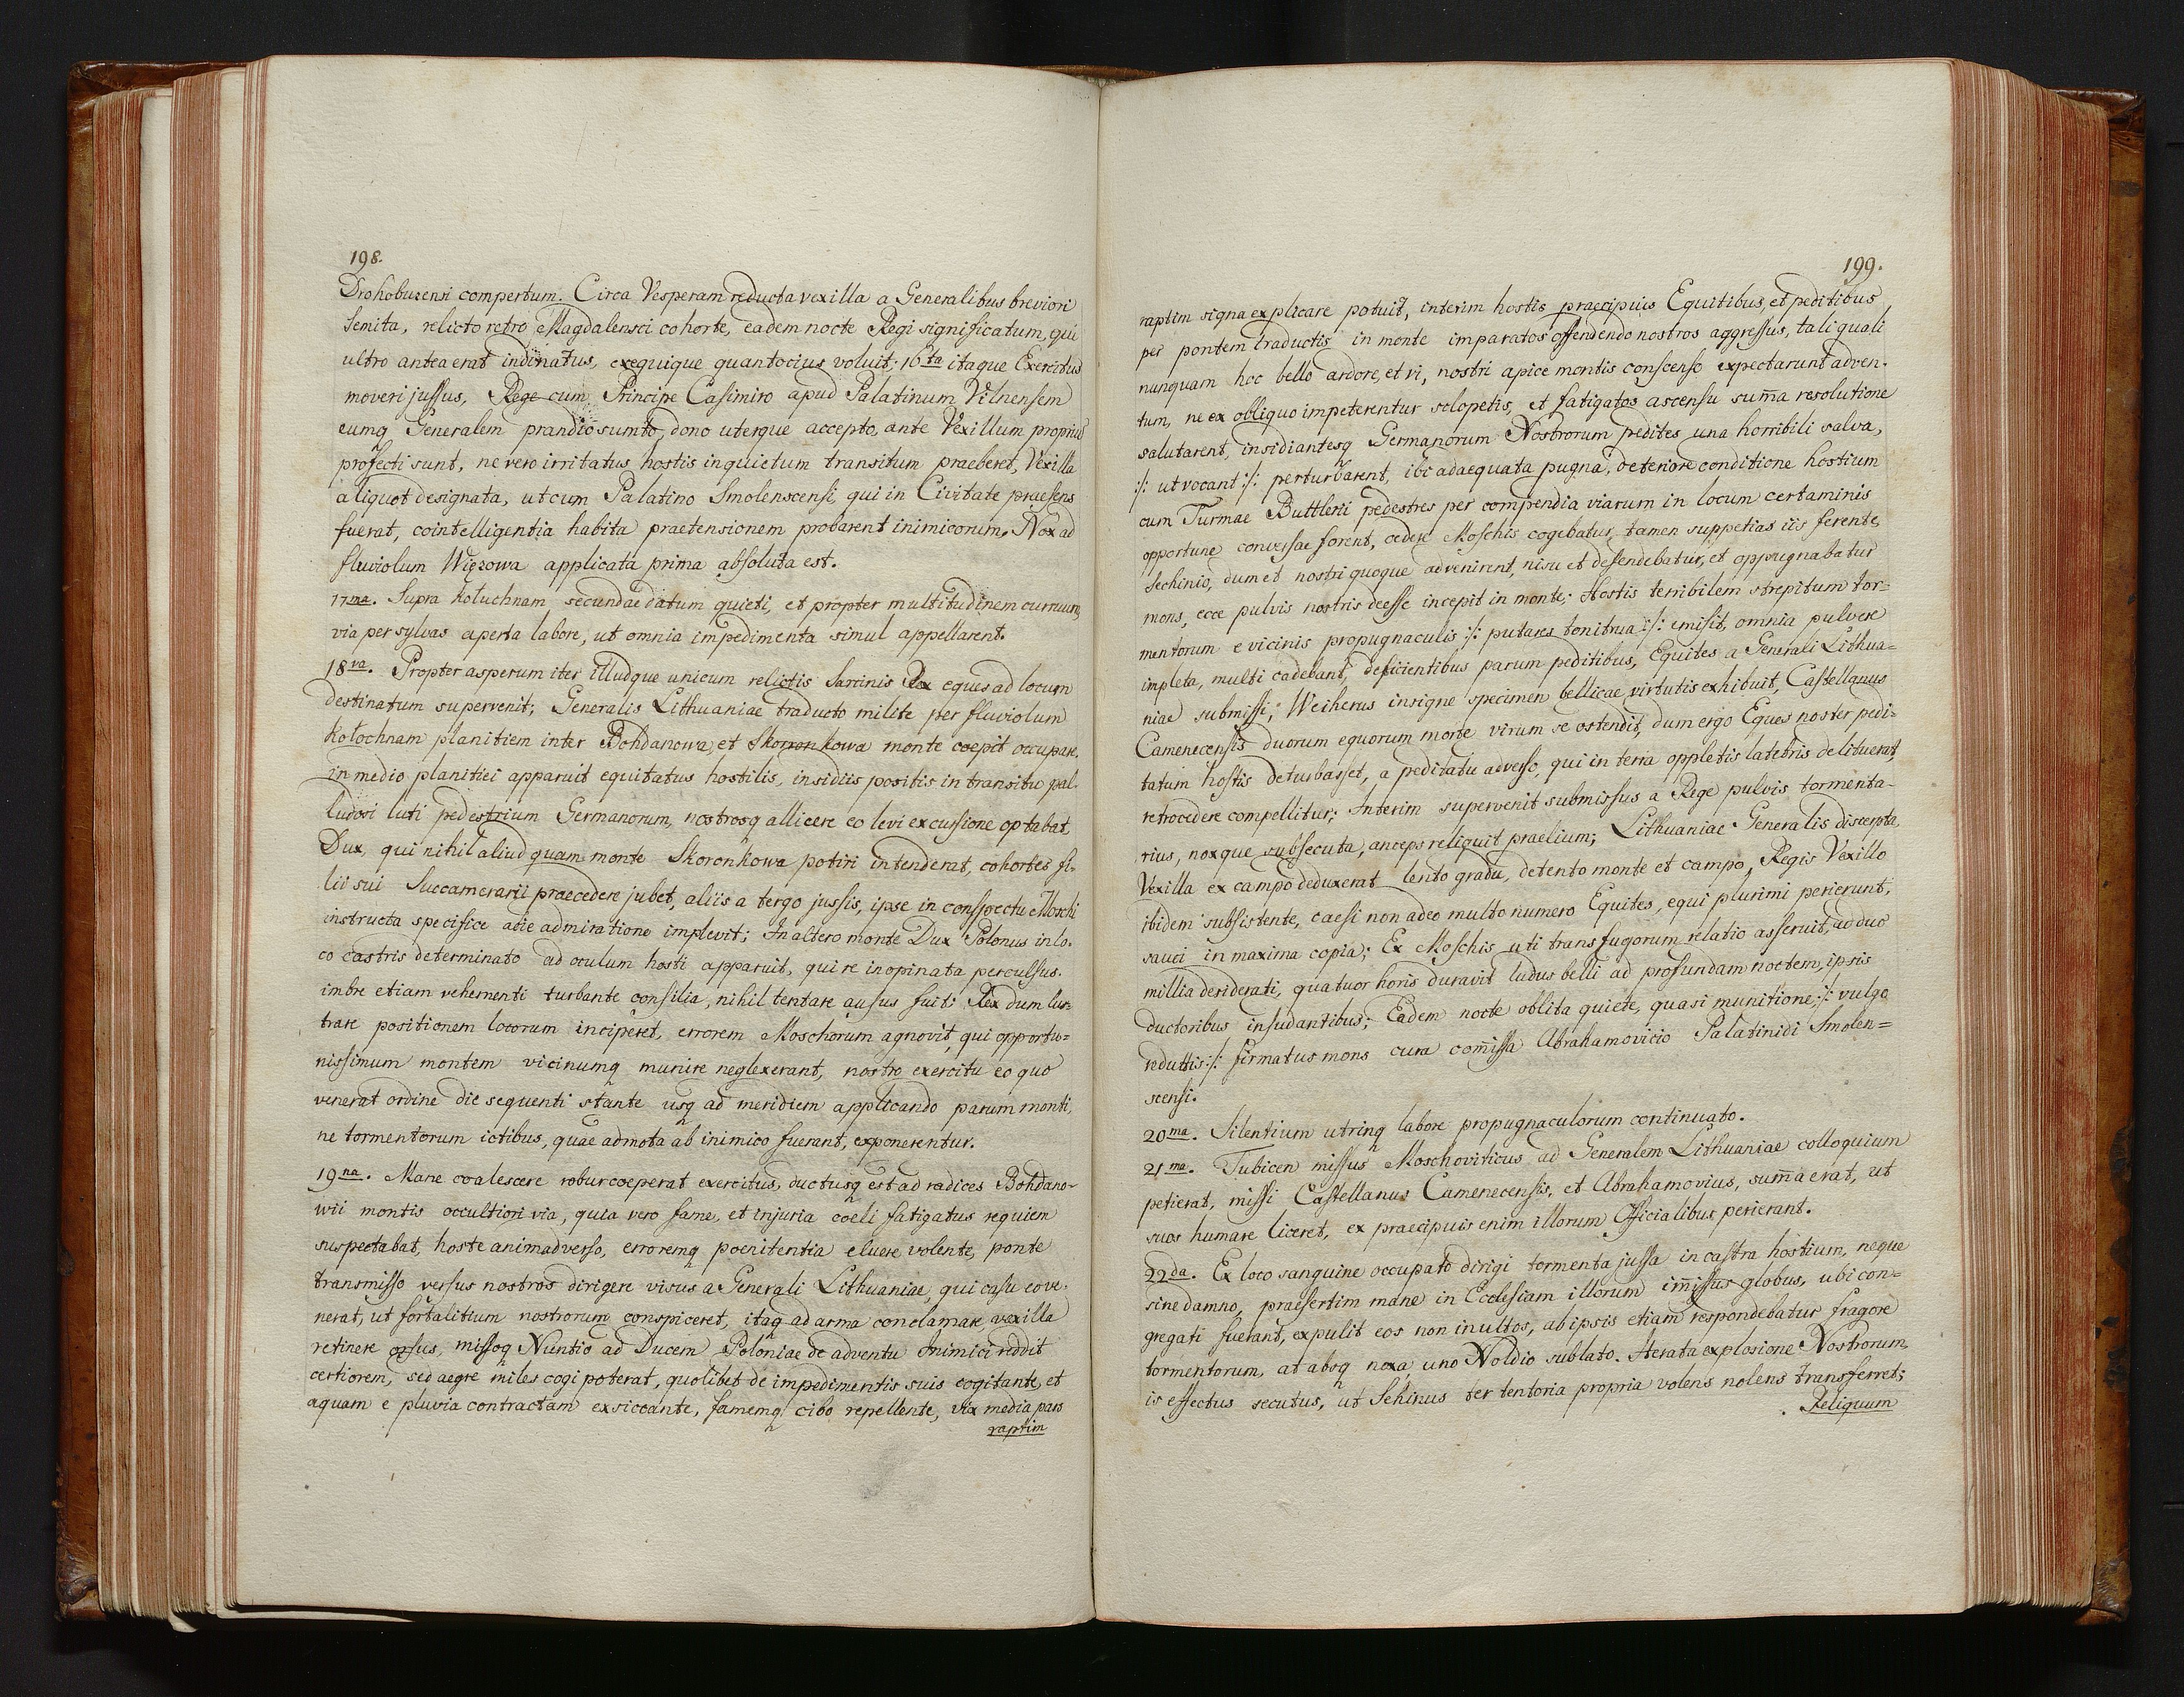 198.
Drohobuzensi compertum. Circa Vesperam reducta vexilla a Generalibus breviori
semita, relicto retro Magdalensci cohorte, eadem nocte Regi significatum, qui
ultro antea erat inclinatus, exequique quantocius voluit; 16ta itaque Exercitus
moveri jussus, Rege cum Principe Casimiro apud Palatinum Vilnensem
eumq Generalem prandio sumto, dono uterque accepto, ante Vexillum proprius
profecti sunt, ne vero irritatus hostis inquietum transitum praeberet, Vexilla
aliquot designata, ut cum Palatino Smolenscensi, qui in Civitate praesens
fuerat, cointelligentia habita praetensionem probarent inimicorum. Nox ad
fluviolum Więzowa applicata prima absoluta est.
17ma. Supra Kołuchnam secundae datum quieti, et propter multitudinem curruum,
via per sylvas aperta labore, ut omnia impedimenta simul appellarent.
18va. Propter asperum iter illudque unicum relictis Sarcinis Rex eques ad locum
destinatum supervenit; Generalis Lithuaniae traducto milite per fluviolum
Kołochnam planitiem inter Bohdanowa, et Skoronkowa monte coepit occupare.
in medio planitiei apparuit equitatus hostilis, insidiis positis in transitu pal-
ludosi luti pedestrium Germanorum, nostrosq allicere eo levi excursione optabat,
Dux, qui nihil aliud quam monte Skoronkowa potiri intenderat, cohortes fi-
lii sui Succamerarii praecedere jubet, aliis a tergo jussis, ipse in conspectu Moschi
instructa specifice acie admiratione implevit; In altero monte Dux Polonus in lo-
co castris determinato ad oculum hosti apparuit, qui re inopinata perculsus.
imbre etiam vehementi turbante consilia, nihil tentare ausus fuit: Rex dum lus-
trare positionem locorum inciperet, errorem Moschorum agnovit, qui opportu=
nissimum montem vicinumq munire neglexerant, nostro exercitu eo quo
venerat ordine die sequenti stante usq ad meridiem applicando parum monti,
ne tormentorum ictibus, quae admota ab inimico fuerant, exponerentur.
19na. Mane coalescere robur coeperat exercitus, ductusq est ad radices Bohdano-
wii montis occultiori via, quia vero fame, et injuria coeli fatigatus requiem
suspectabat, hoste animadverso, erroremq poenitentia eluere volente, ponte
transmisso versus nostros dirigere visus a Generali Lithuaniae, qui casu eove-
nerat, ut fortalitium nostrorum conspiceret, itaq ad arma conclamare, vexilla
retinere orsus, missoq Nuntio ad Ducem Poloniae de adventu Inimici reddit
certiorem, sed aegre miles cogi poterat, quolibet de impedimentis suis cogitante, et
aquam e pluvia contractam exsiccante, famemq cibo repellente, vix media pars
raptim
199.
raptim signa explicare potuit, interim hostis praecipuis Equitibus, et peditibus
per pontem traductis in monte imparatos offendendo nostros aggressus, tali quali
nunquam hoc bello ardore, et vi, nostri apice montis conscenso expectarunt adven-
tum, ne ex obliquo impeterentur sclopetis, et fatigatos ascensu suma resolutione
salutarent, insidiantesq Germanorum Nostrorum pedites una horribili salva,
:/: ut vocant :/: perturbarent, ibi adaequata pugna, deteriore conditione hostium
cum Turmae Buttleri pedestres per compendia viarum in locum certaminis
opportune conversae forent, cedere Moschis cogebatur, tamen suppetias iis ferente
Sechinio, dum et nostri quoque advenirent, nisu et defendebatur, et oppugnabatur
mons, ecce pulvis nostris deesse incepit in monte; Hostis terribilem strepitum tor=
mentorum e vicinis propugnaculis :/: putares tonitrua :/: emisit, omnia pulvere
impleta, multi cadebant, deficientibus parum peditibus, Equites a Generali Lithua=
niae submissi; Weiherus insigne specimen bellicae virtutis exhibuit, Castellanus
Camenecensis duorum equorum morte virum se ostendit, dum ergo Eques noster pedi=
tatum hostis deturbasset, a peditatu adverso, qui in terra oppletis latebris delituerat,
retrocedere compellitur; Interim supervenit submissus a Rege pulvis tormenta-
rius, noxque subsecuta, anceps reliquit praelium; Lithuaniae Generalis discerpta
Vexilla ex campo deduxerat lento gradu, detento monte et campo, Regis Vexillo
ibidem subsistente, caesi non adeo multo numero Equites, equi plurimi perierunt,
sauci in maxima copia; Ex Moschis uti transfugorum relatio asseruit, ad duo
millia desiderati, quatuor horis duravit ludus belli ad profundam noctem, ipsis
ductoribus insudantibus; Eadem nocte oblita quiete, quasi munitione :/: vulgo
reduttis :/: firmatus mons cura comissa Abrahamovicio Palatinidi Smolen=
scensi.
20ma. Silentium utrinq labore propugnaculorum continuato.
21ma. Tubicen missus Moschoviticus ad Generalem Lithuaniae colloquium
petierat, missi Castellanus Camenecensis, et Abrahamovius, suma erat, ut
suos humare liceret, ex praecipuis enim illorum Officialibus perierant.
22da. Ex loco sanguine occupato dirigi tormenta jussa in castra hostium, neque
sine damno, praesertim mane in Ecclesiam illorum imissus globus, ubi con=
gregati fuerant, expulit eos non inultos, ab ipsis etiam respondebatur fragore
tormentorum, at absq noxa, uno Noldio sublato. Iterata explosione Nostrorum,
is effectus secutus, ut Sehinus ter tentoria propria volens nolens transferret;
Reliquum